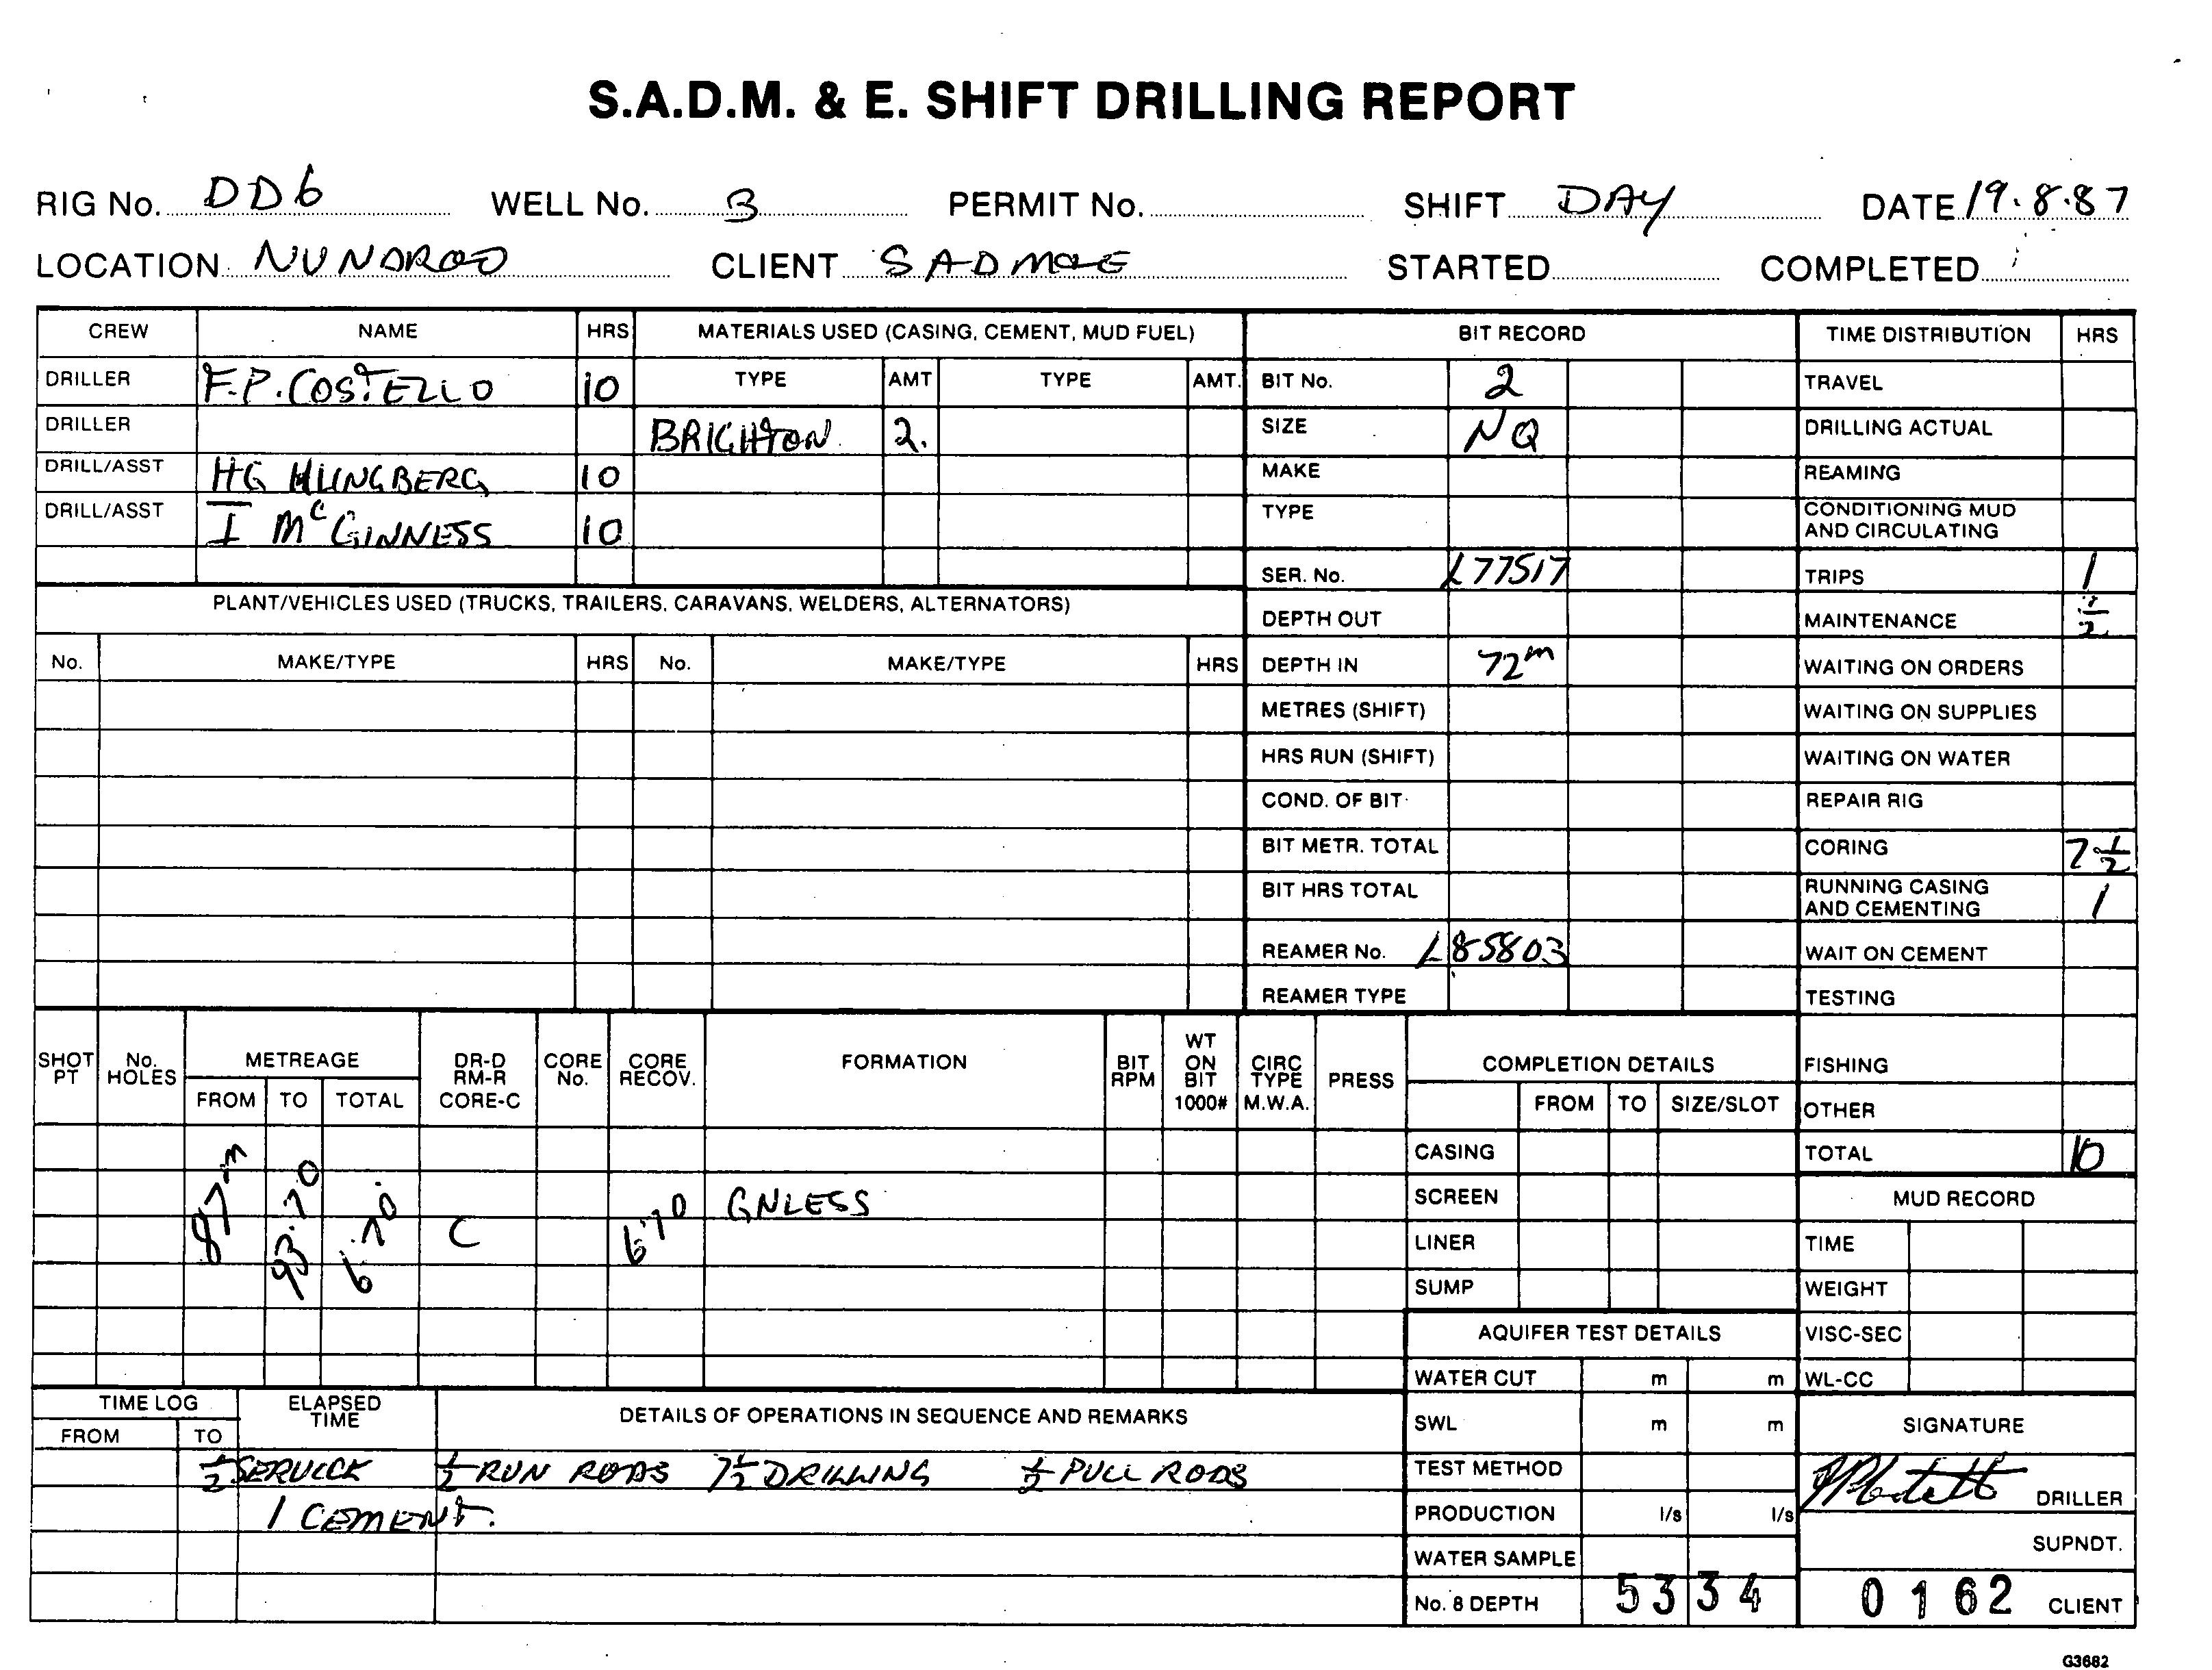 S.A.D.M. & E. SHIFT DRILLING REPORT
RIG No. DD6 WELL No. 3 PERMIT No. SHIFT DAY DATE 19.8.87
LOCATION NUNDROO CLIENT SADMOE STARTED COMPLETED
CREW NAME HRS MATERIALS USED (CASING, CEMENT, MUD FUEL) BIT RECORD TIME DISTRIBUTION HRS
DRILLER F.P. COSTELLO 10 TYPE AMT TYPE AMT. BIT No. 2 TRAVEL
DRILLER BRIGHTON 2. SIZE NQ DRILLING ACTUAL
DRILL/ASST HG 10 MAKE REAMING
DRILL/ASST I McGINNESS 10 TYPE CONDITIONING MUD AND CIRCULATING
SER. No. L77517 TRIPS 1
PLANT/VEHICLES USED (TRUCKS, TRAILERS, CARAVANS, WELDERS, ALTERNATORS) DEPTH OUT MAINTENANCE 1/2
No. MAKE/TYPE HRS No. MAKE/TYPE HRS DEPTH IN 72m WAITING ON ORDERS
METRES (SHIFT) WAITING ON SUPPLIES
HRS RUN (SHIFT) WAITING ON WATER
COND. OF BIT REPAIR RIG
BIT METR. TOTAL CORING 7 1/2
BIT HRS TOTAL RUNNING CASING AND CEMENTING 1
REAMER No. L85803 WAIT ON CEMENT
REAMER TYPE TESTING
SHOT PT No. HOLES METREAGE DR-D RM-R CORE-C CORE No. CORE RECOV. FORMATION BIT RPM WT ON BIT 1000# CIRC TYPE M.W.A. PRESS COMPLETION DETAILS FISHING
FROM TO TOTAL FROM TO SIZE/SLOT OTHER
CASING TOTAL 10
87m 93.70 6.70 C 6.70 GNLESS SCREEN MUD RECORD
LINER TIME
SUMP WEIGHT
AQUIFER TEST DETAILS VISC-SEC
WATER CUT m m WL-CC
TIME LOG ELAPSED TIME DETAILS OF OPERATIONS IN SEQUENCE AND REMARKS SWL m m SIGNATURE
FROM TO
1/2 1/2 RUN RODS 7 1/2 DRILLING 1/2 PULL RODS TEST METHOD DRILLER
1 CEMENT. PRODUCTION l/s l/s
WATER SAMPLE SUPNDT.
No. 8 DEPTH 5334 0162 CLIENT
G3682